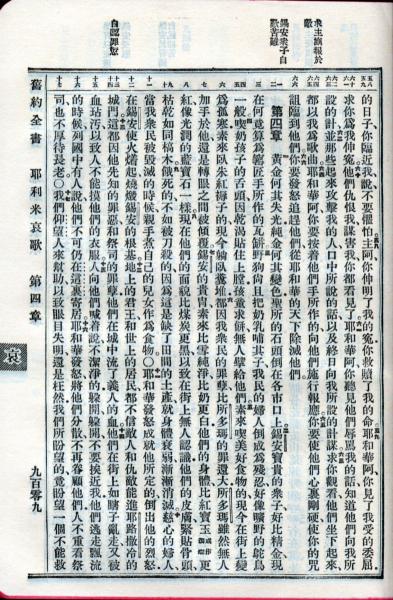 求主施報於敵
錫安衆子自歎苦難
自認罪愆
的日子你臨近我說不要懼怕主阿你伸明了我的冤你救贖了我的命耶和華阿你見了我受的委屈
求你為我伸冤他們仇恨我謀害我你都看見了耶和華阿你聽見他們辱罵我的話知道他們向我所
設的計並那些起來攻擊我的人口中所說的話以及終日向我所設的計謀求你觀看他們坐下起來
都以我為歌曲耶和華阿你要按着他們手所作的向他們施行報應你要使他們心裏剛硬使你的咒
詛臨到他們你要發怒追趕他們從耶和華的天下除滅他們
第四章 黃金何其失光純金何其變色聖所的石頭倒在各市口上錫安寶貴的衆子好比精金現
在何竟算為窰匠手所作的瓦缾野狗尚且把奶乳哺其子我民的婦人倒成為殘忍好像曠野的鴕鳥
一般喫奶孩子的舌頭因乾渴貼住上膛孩童求餅無人擘給他們素來喫美好食物的現今在街上變
為孤寒素來臥朱紅褥子的現今躺臥糞堆都因我衆民的罪孽比所多瑪的罪還大所多瑪雖然無人
加手於他還是轉眼之間被傾覆錫安的貴冑素來比雪純淨比奶更白他們的身體比紅寶玉更
紅像光潤的藍寶石一樣現在他們的面貌比煤炭更黑以致在街上無人認識他們的皮膚緊貼骨頭
枯乾如同槁木餓死的不如被刀殺的因為這是缺了田間的土產就身體衰弱漸漸消滅慈心的婦人
當我衆民被毀滅的時候親手煮自己的兒女作為食物○耶和華發怒成就他所定的倒出他的烈怒
在錫安使火起燒燬錫安的根基地上的君王和世上的居民都不信敵人和仇敵能進耶路撒冷的
城門這都因他先知的罪惡和祭司的罪孽他們在城中流了義人的血他們在街上如瞎子亂走又被
血玷汚以致人不能摸他們的衣服人向他們喊着說不潔淨的躲開躲開不要挨近我他們逃走飄流
的時候列國中有人說他們不可仍在這裏寄居耶和華發怒將他們分散不再眷顧他們人不重看祭
司也不厚待長老○我們仰望人來幫助以致眼目失明還是枉然我們所盼望的竟盼望一個不能救
舊約全書 耶利米哀歌 第四章 九百零九
哀